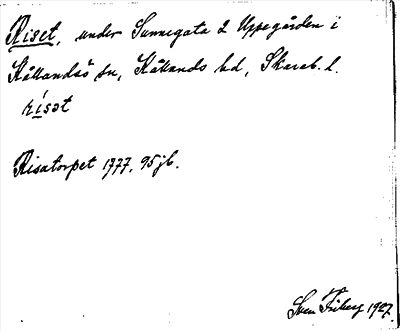 Riset, under Sunnegata 2 Uppegården i
Kållandsö sn, Kållands hd, Skarab. l.
rísət
Risatorpet 1777, 95 jb.
Sven Friberg 1927.